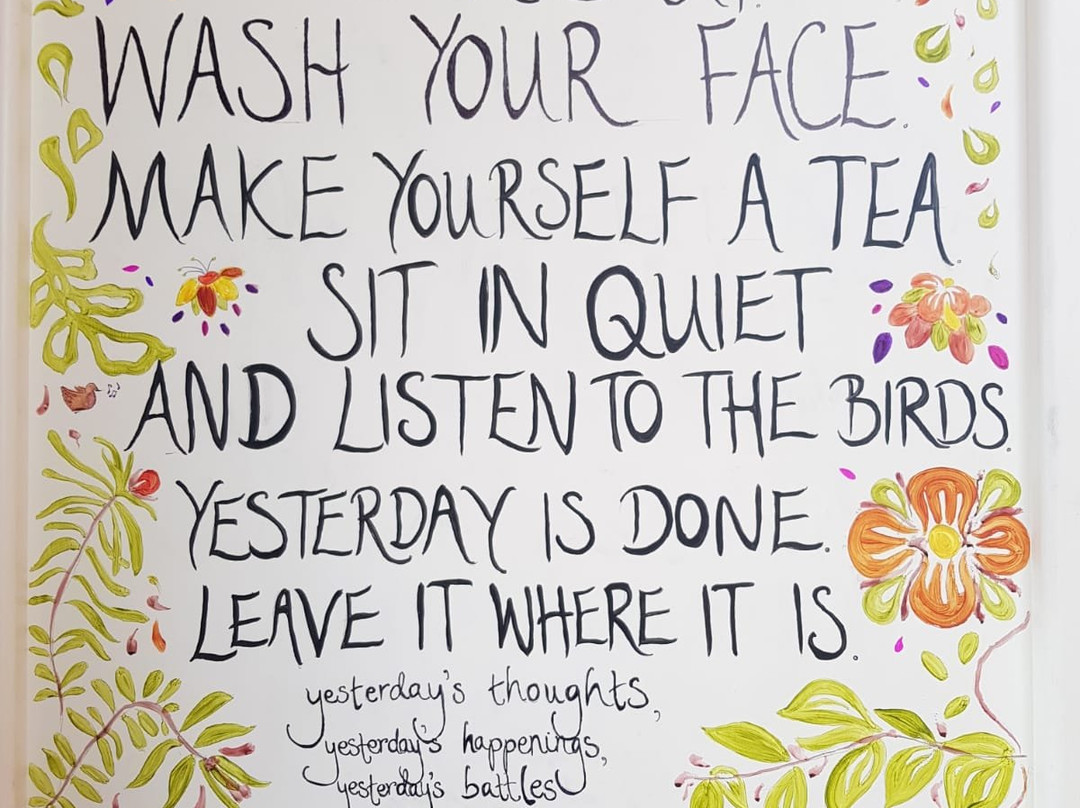 WASH YOUR FACE.
MAKE YOURSELF A TEA.
SIT IN QUIET
AND LISTEN TO THE BIRDS.
YESTERDAY IS DONE.
LEAVE IT WHERE IT IS.
yesterday's thoughts,
yesterday's happenings,
yesterday's battles